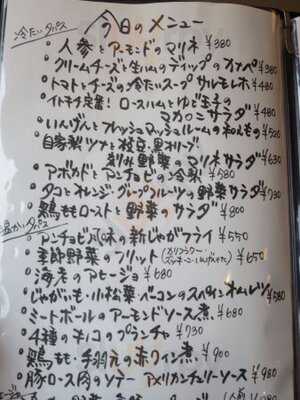 今日のメニュー
冷たいタパス
・人参とアーモンドのマリネ ¥380
・クリームチーズと生ハムのディップのカナペ ¥380
・トマトとチーズの冷たいスープ サルモレホ 480
・イトキチ定番！ロースハムとゆで玉子の
マカロニサラダ ¥480
・いんげんとフレッシュマッシュルームの和えもの ¥520
・自家製ツナと枝豆・黒オリーブ
刻み野菜のマリネサラダ ¥630
・アボカドとアンチョビの冷製 ¥580
・タコとオレンジ・グレープフルーツの野菜サラダ ¥730
・鶏ももローストと野菜のサラダ ¥800
温かいタパス
・アンチョビ風味の新じゃがフライ ¥550
・季節野菜のフリット (カリフラワー ¥650
・海老のアヒージョ ¥680
・じゃがいも・小松菜・ベーコンのスペインオムレツ ¥580
・ミートボールのアーモンドソース煮 ¥680
・4種のキノコのプランチャ ¥730
・鶏もも・手羽元の赤ワイン煮 ¥900
・豚ロース肉のソテー アメリカンチェリーソース ¥980